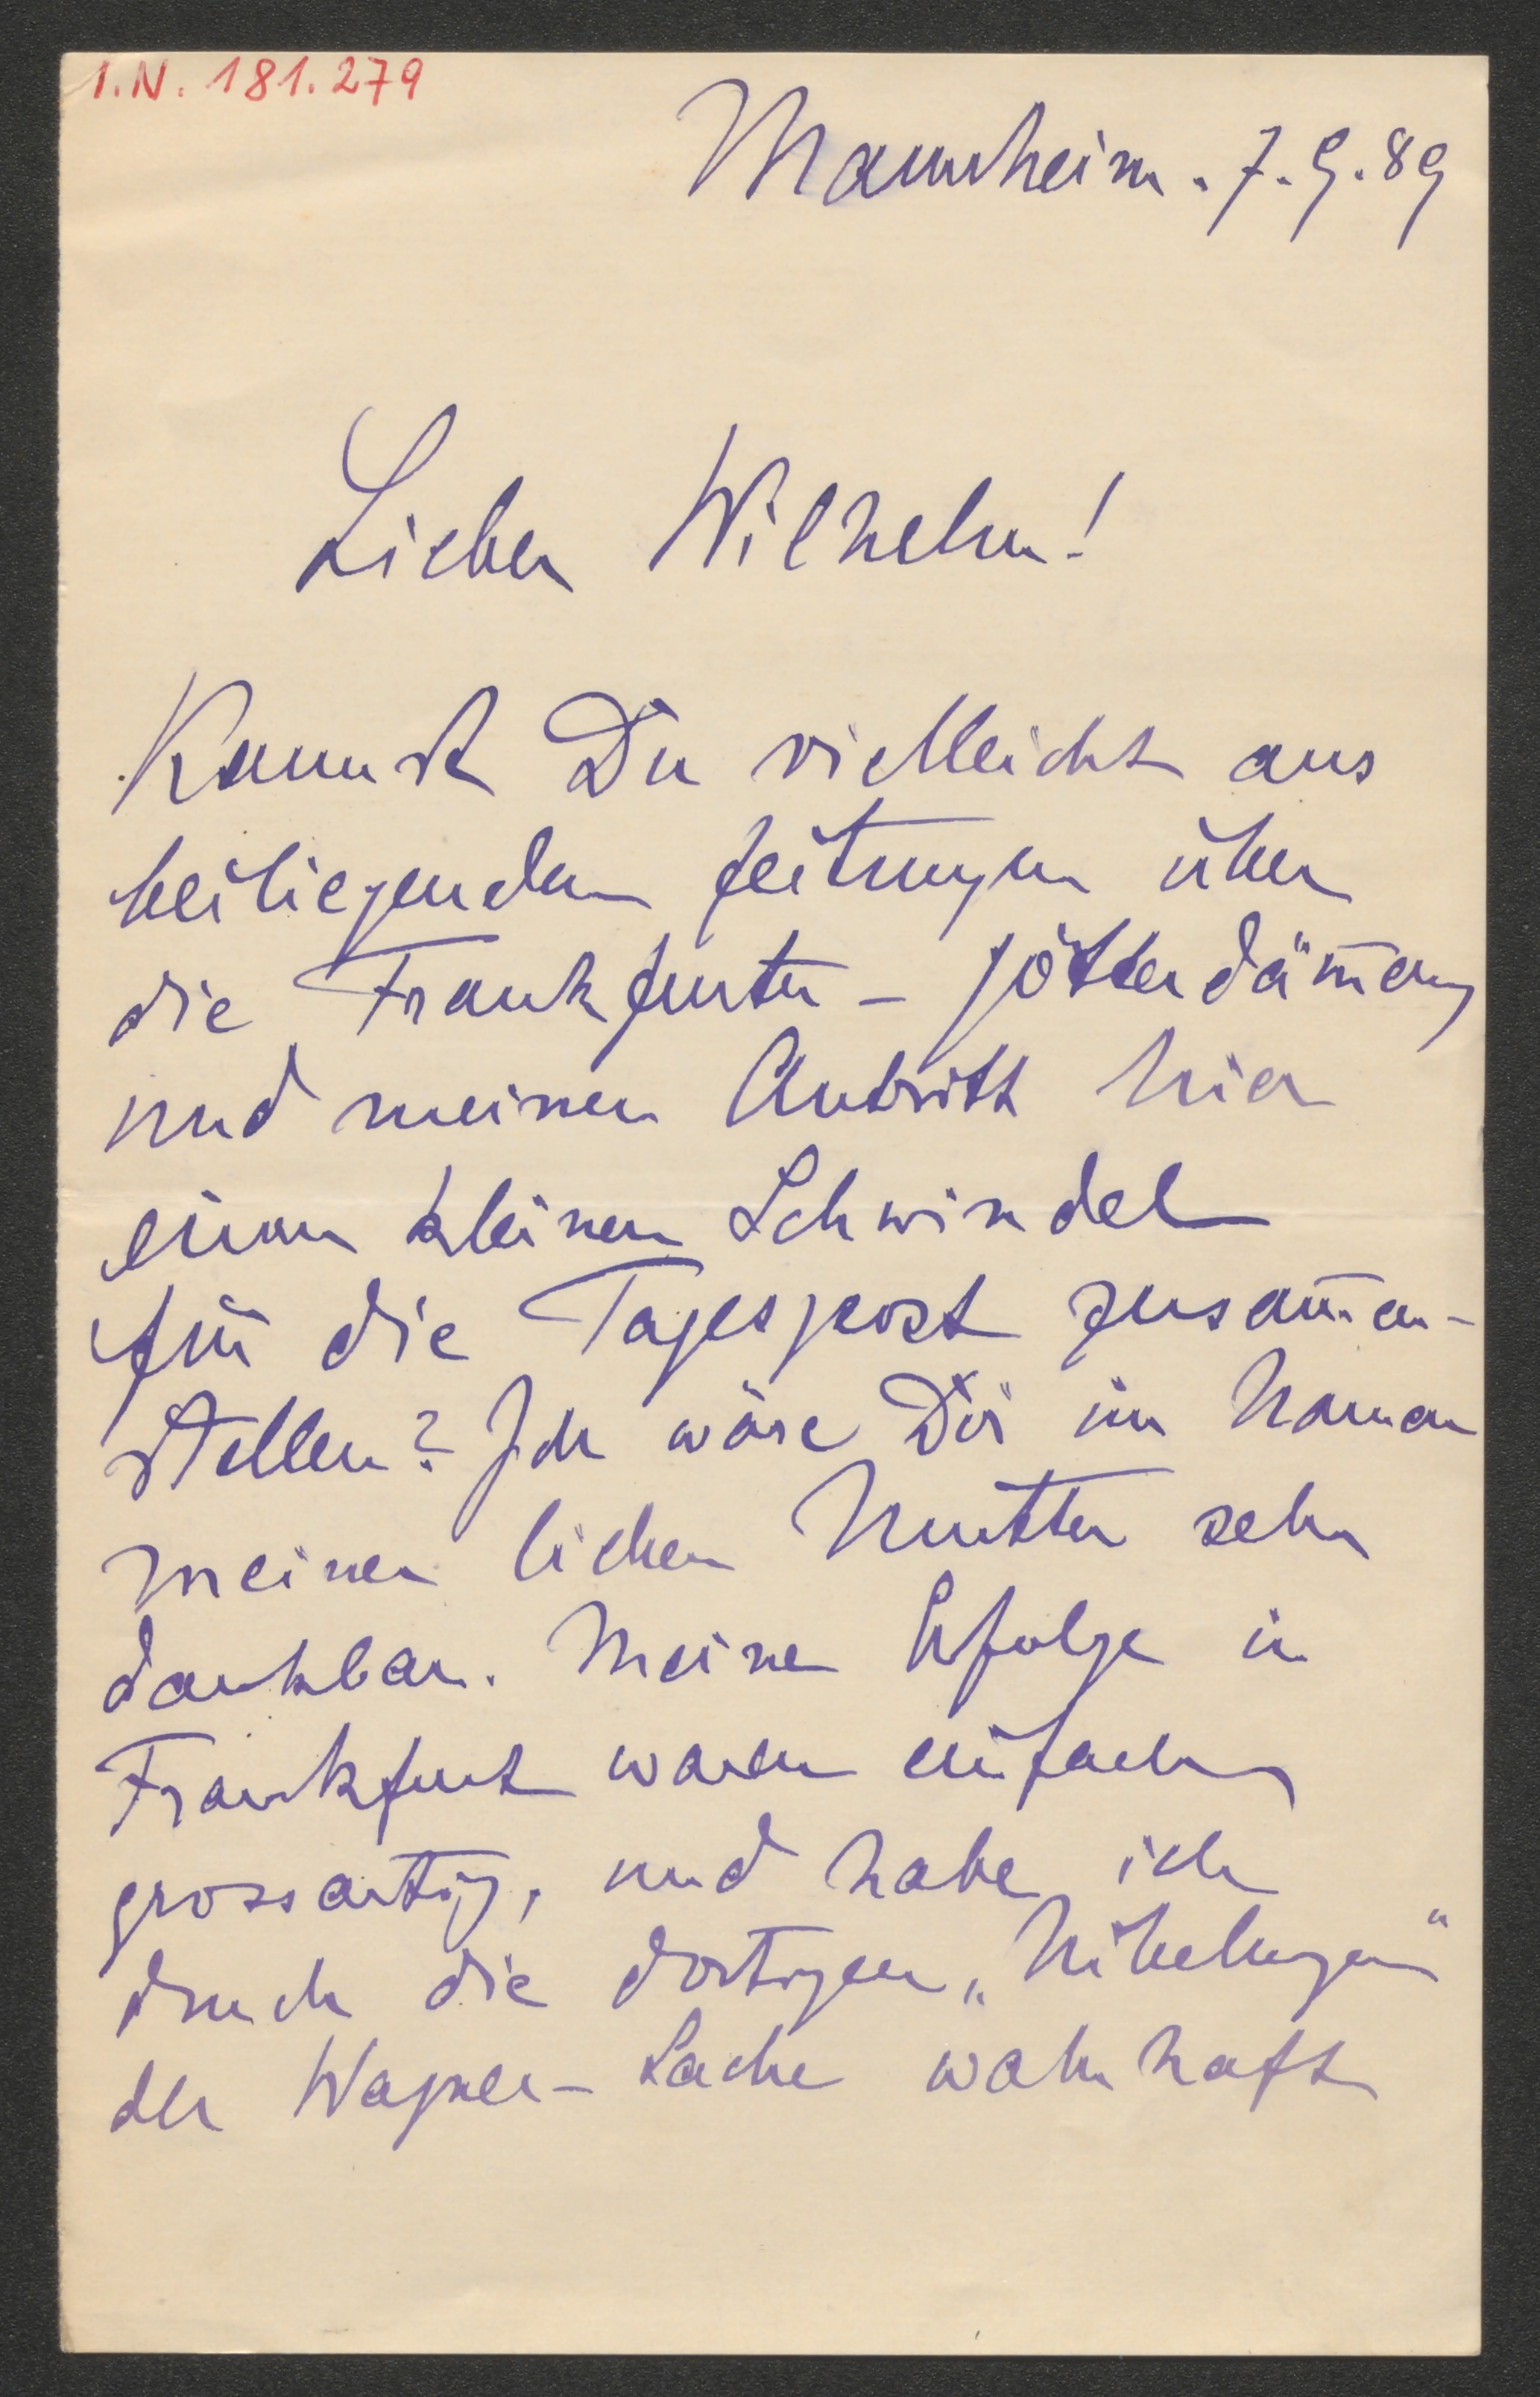 I.N. 181.279
Mannheim. 7.9.89
Lieber Wilhelm!
Kannst Du vielleicht aus
beiliegenden Zeitungen über
die Frankfurter - Götterdäm̄erung
und meinen Antritt hier
einen kleinen Schwindel
für die Tagespost zusam̄en-
stellen? Ich wäre Dir im Namen
meiner lieben Mutter sehr
dankbar. Meine Erfolge in
Frankfurt waren einfach
grossartig, und habe ich
durch die dortigen „Nibelungen“
der Wagner - Sache wahrhaft